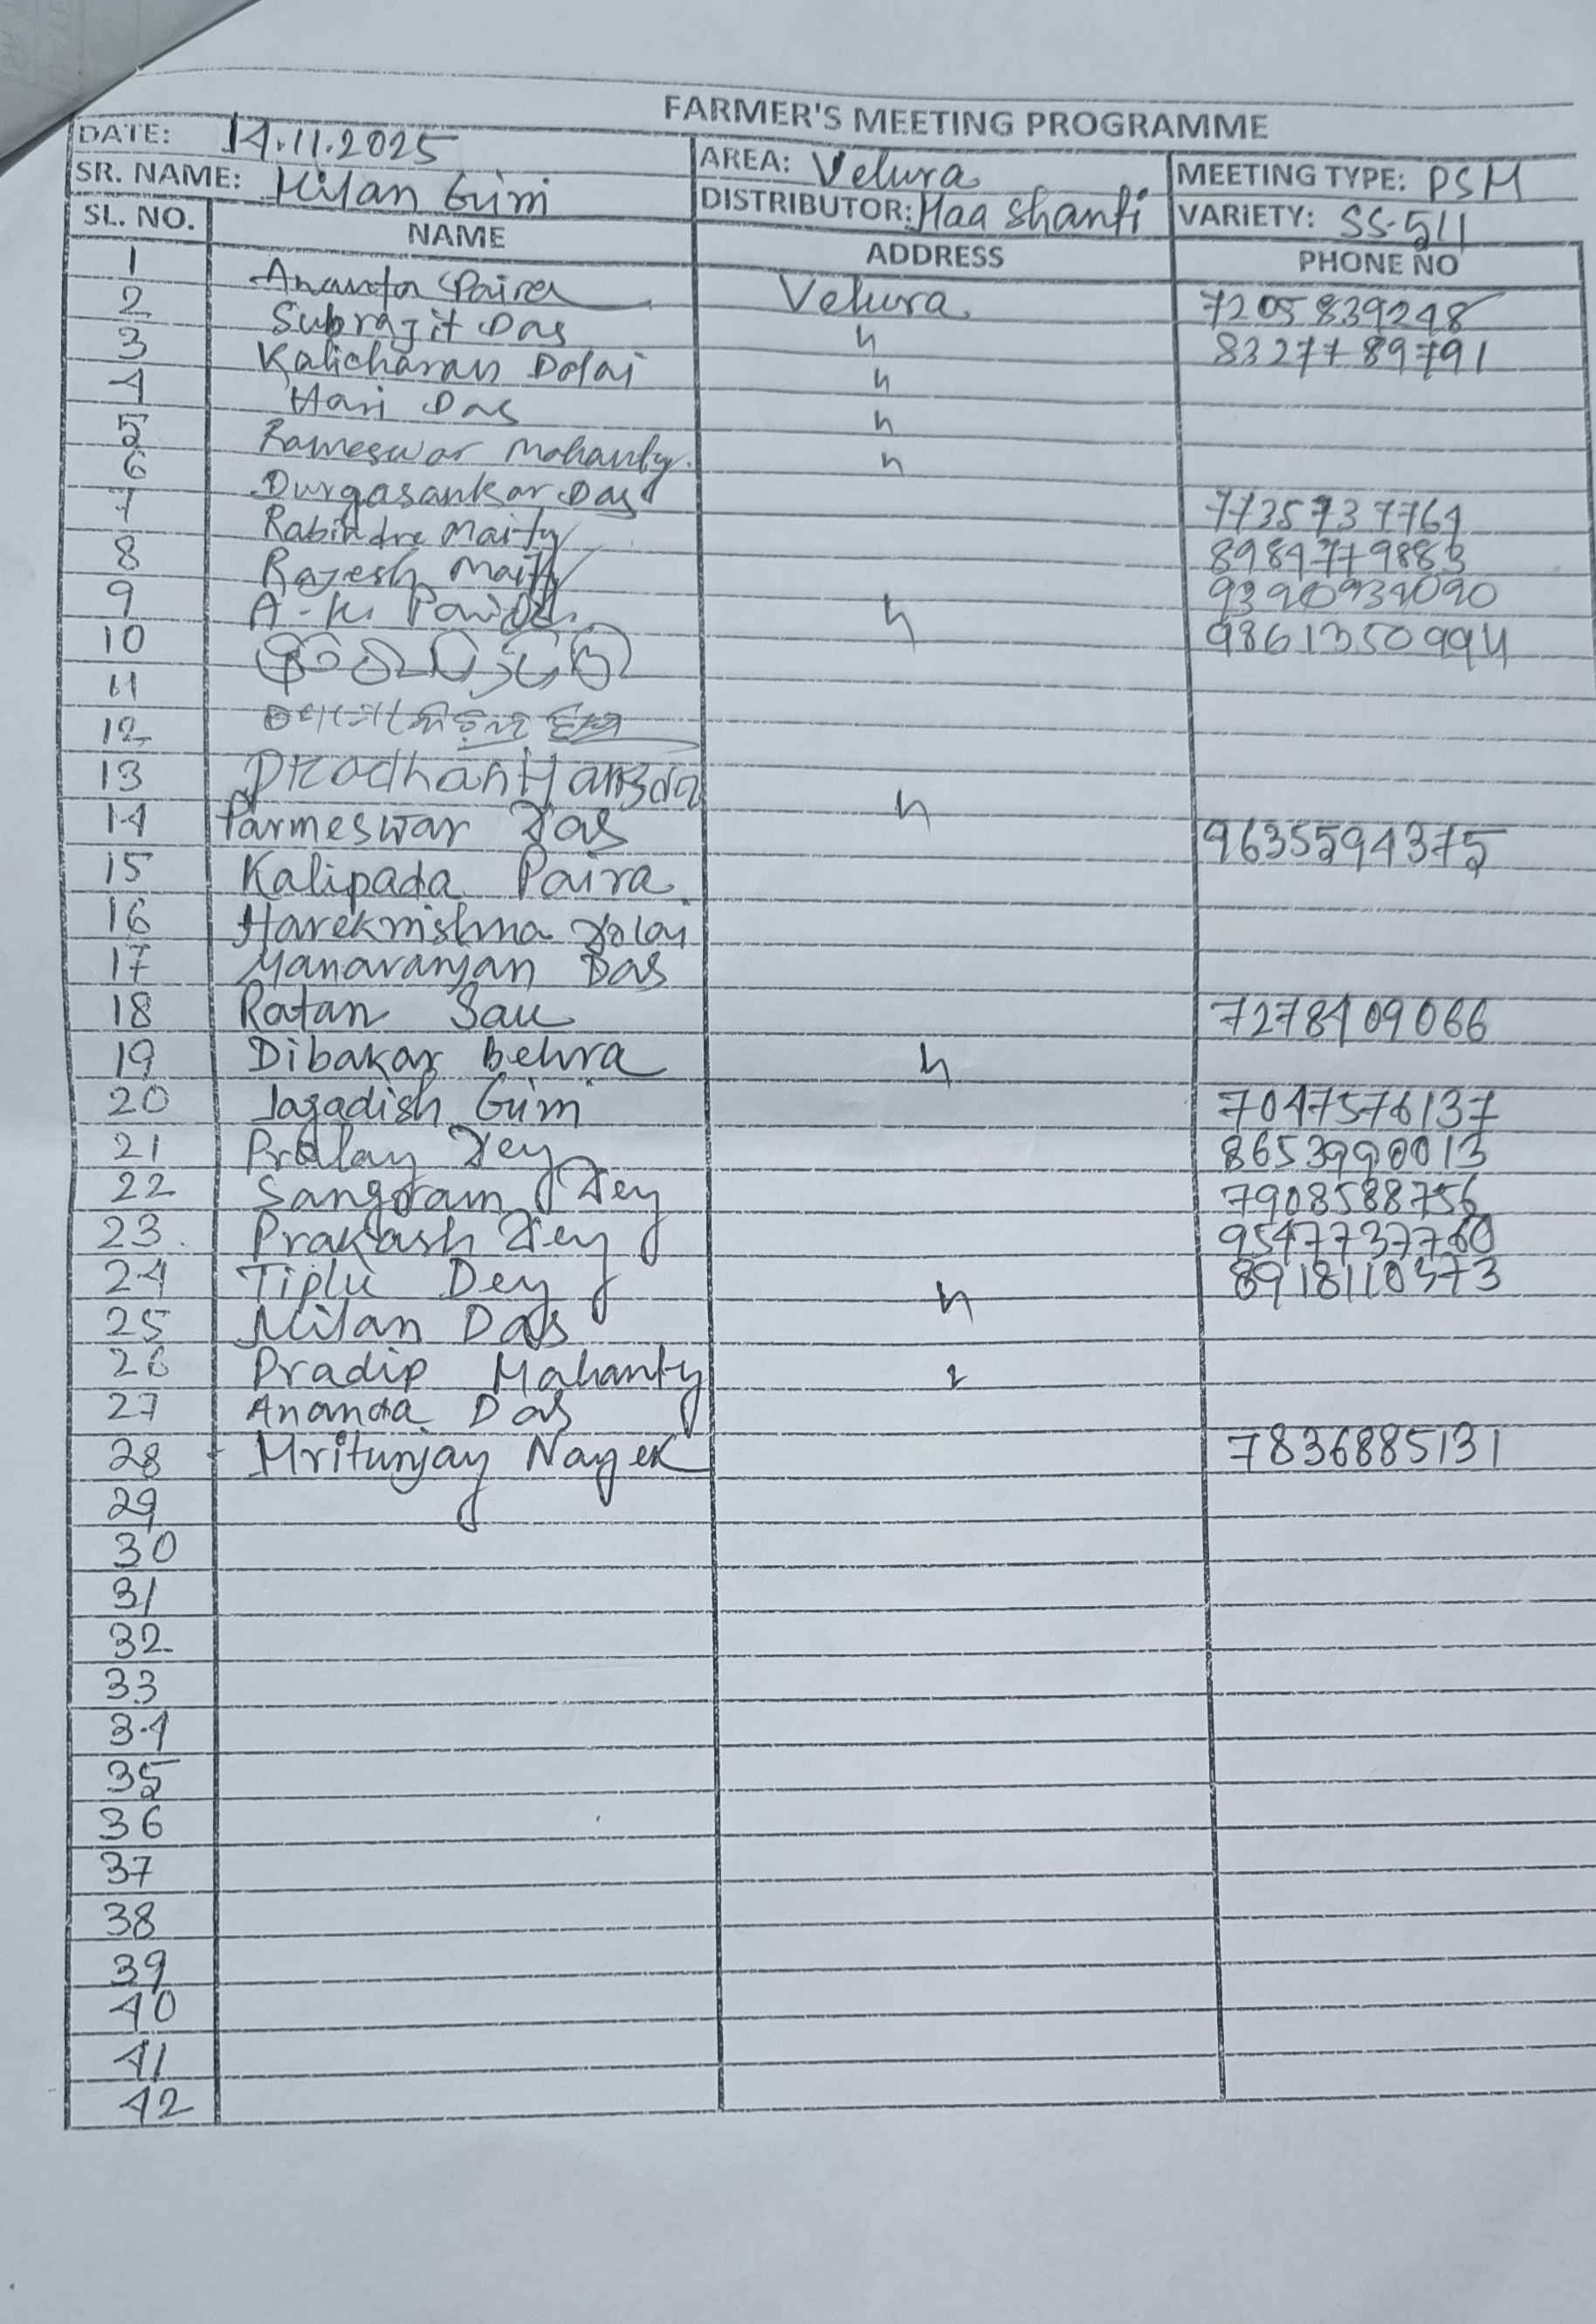 FARMER'S MEETING PROGRAMME
DATE: 14.11.2025 AREA: Velura MEETING TYPE: PSM
SR. NAME: Milan Giri DISTRIBUTOR: Maa Shanti VARIETY: SS-511
SL. NO. NAME ADDRESS PHONE NO
1 Ananta Paira Velura 7205839248
2 Subrajit Das 〃 8327789791
3 Kalicharan Dolai 〃
4 Hari Das 〃
5 Rameswar Mohanty 〃
6 Durgasankar Das 7735737764
7 Rabindra Maity
8 Rajesh Maity
9 A. K. 〃 9861350994
10
11
12
13 Pradhan Hansda 〃
14 Parmeswar Das 9635594375
15 Kalipada Paira
16 Harekrishna Dolai
17 Manaranjan Das
18 Ratan Sau 7278409066
19 Dibakar Behra 〃
20 Jagadish Giri 7047576137
21 Pralay Dey 8653990013
22 Sangram Dey 7908588756
23 Prakash Dey
24 Tiplu Dey 〃
25 Milan Das
26 Pradip Mahanty
27 Ananda Das
28 Mritunjay Nayek 7836885131
29
30
31
32
33
34
35
36
37
38
39
40
41
42